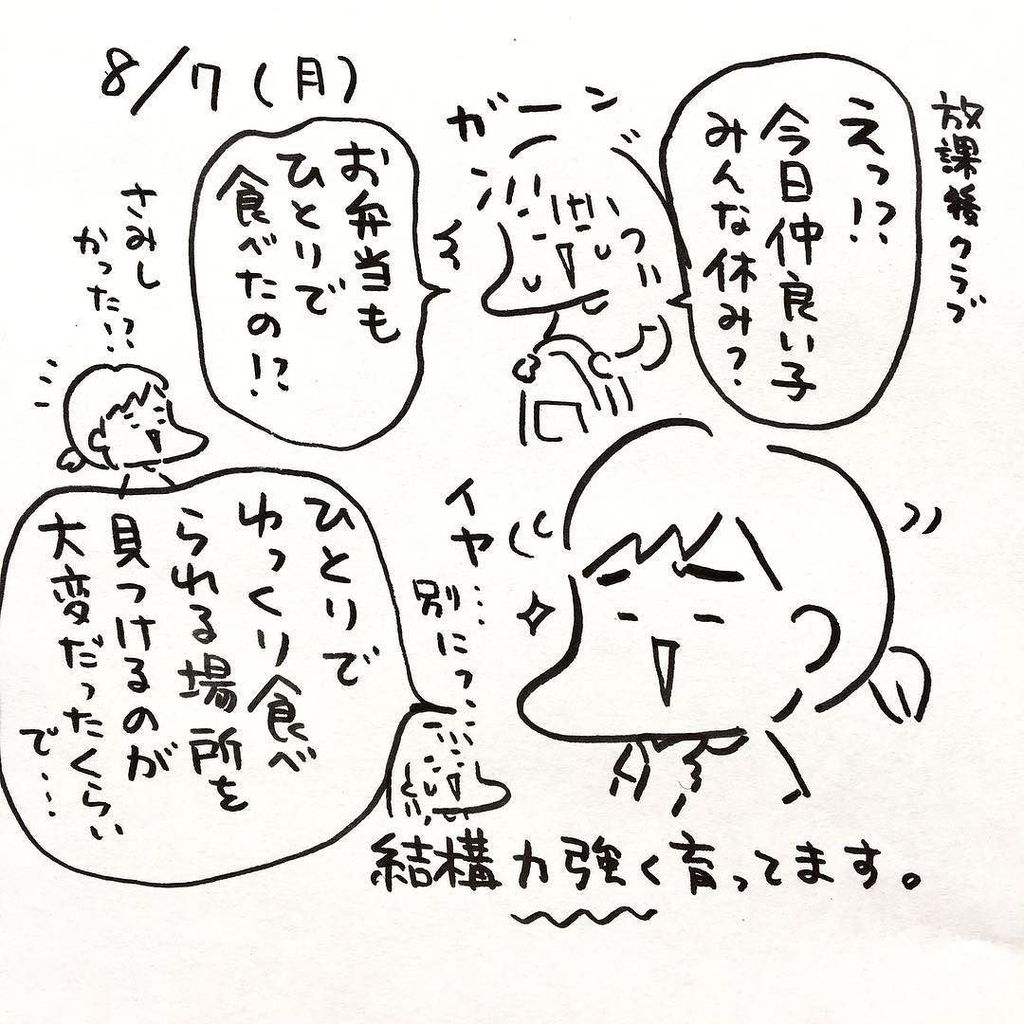 8/7(月)
放課後クラブ
えっ!?
今日仲良い子
みんな休み?
ガーン
お弁当も
ひとりで
食べたの!?
さみし
かった!?
イヤ…
別にっ
ひとりで
ゆっくり食べ
られる場所を
見つけるのが
大変だったくらい
で…
結構力強く育ってます。